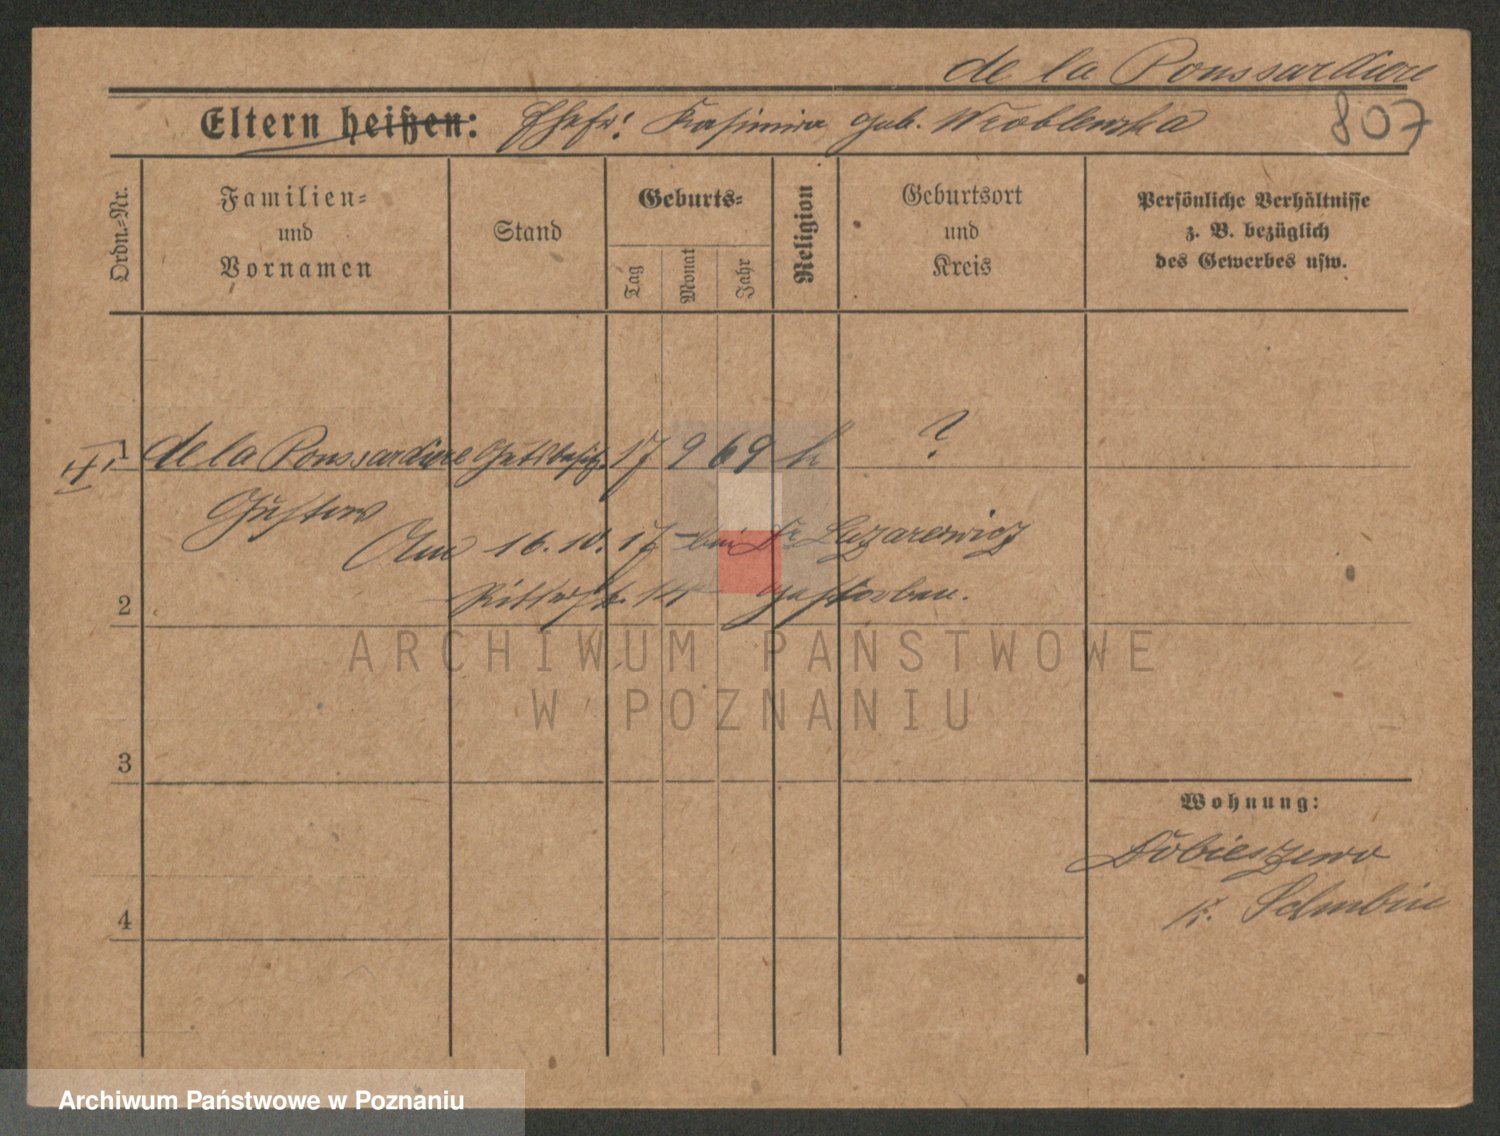 de la Poussardiere
Eltern heißen: Ehefr: Kasimira geb. Wroblewska
807
Ordn.-Nr.
Familien-
und
Vornamen
Stand
Geburts-
Tag
Monat
Jahr
Religion
Geburtsort
und
Kreis
Persönliche Verhältnisse
z. B. bezüglich
des Gewerbes usw.
1 de la Poussardiere Gutsbesitz. 17 9 69 k ?
Gustav
Am 16.10.17 bei Dr Lazarewicz
2 Ritterstr. 14 gestorben.
ARCHIWUM PAŃSTWOWE
W POZNANIU
3
Wohnung:
Dobieszewo
K. Schubin
4
Archiwum Państwowe w Poznaniu